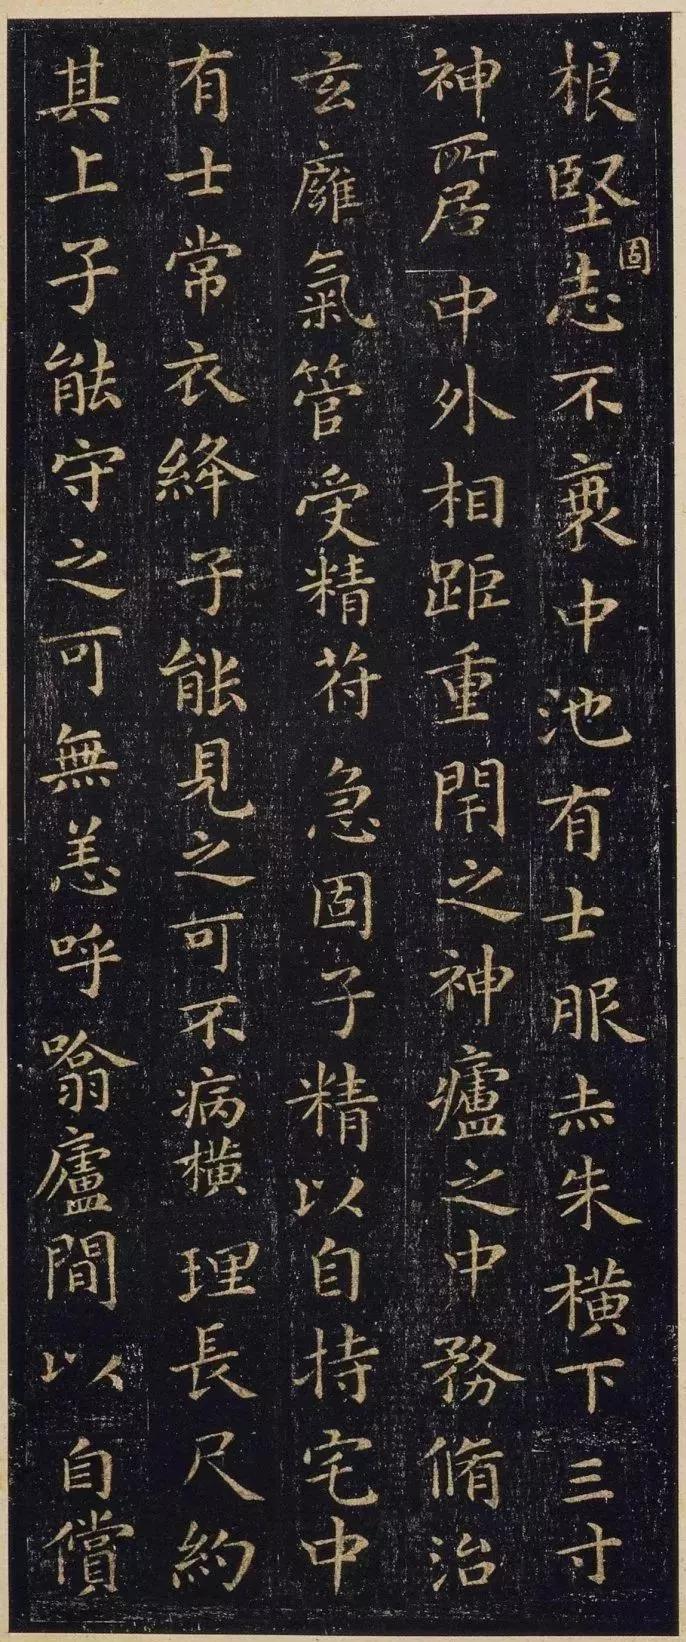 根堅固志不衰中池有士服赤朱橫下三寸
神所居中外相距重閇之神廬之中務脩治
玄𤸰氣管受精苻急固子精以自持宅中
有士常衣絳子能見之可不病橫理長尺約
其上子能守之可無恙呼噏廬間以自償